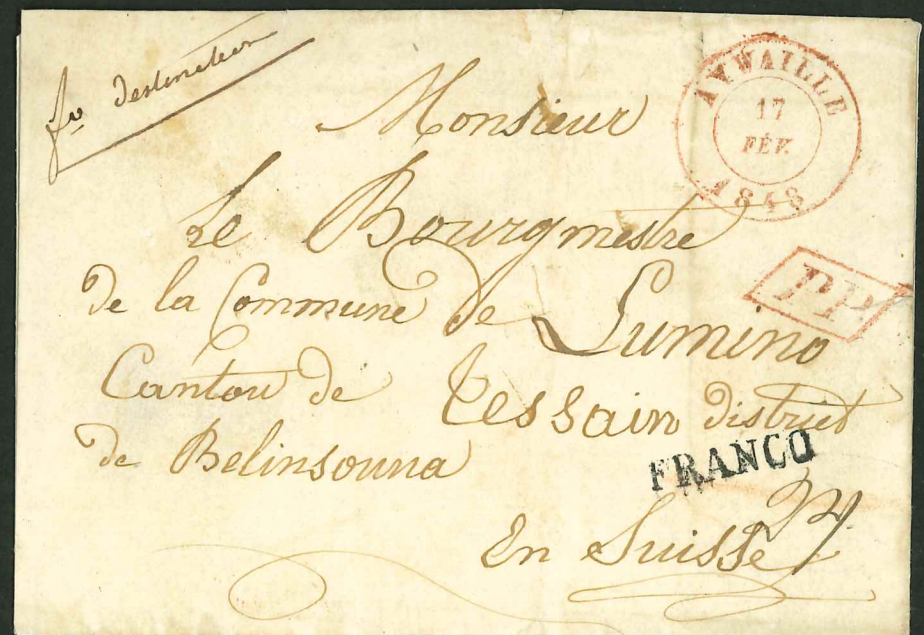 fro destination
Monsieur
AYWAILLE
17
FÉV.
1848
Le Bourgmestre
PP
de la Commune de Lumino
Canton de tessain district
de Belinsouna
FRANCO
En Suisse